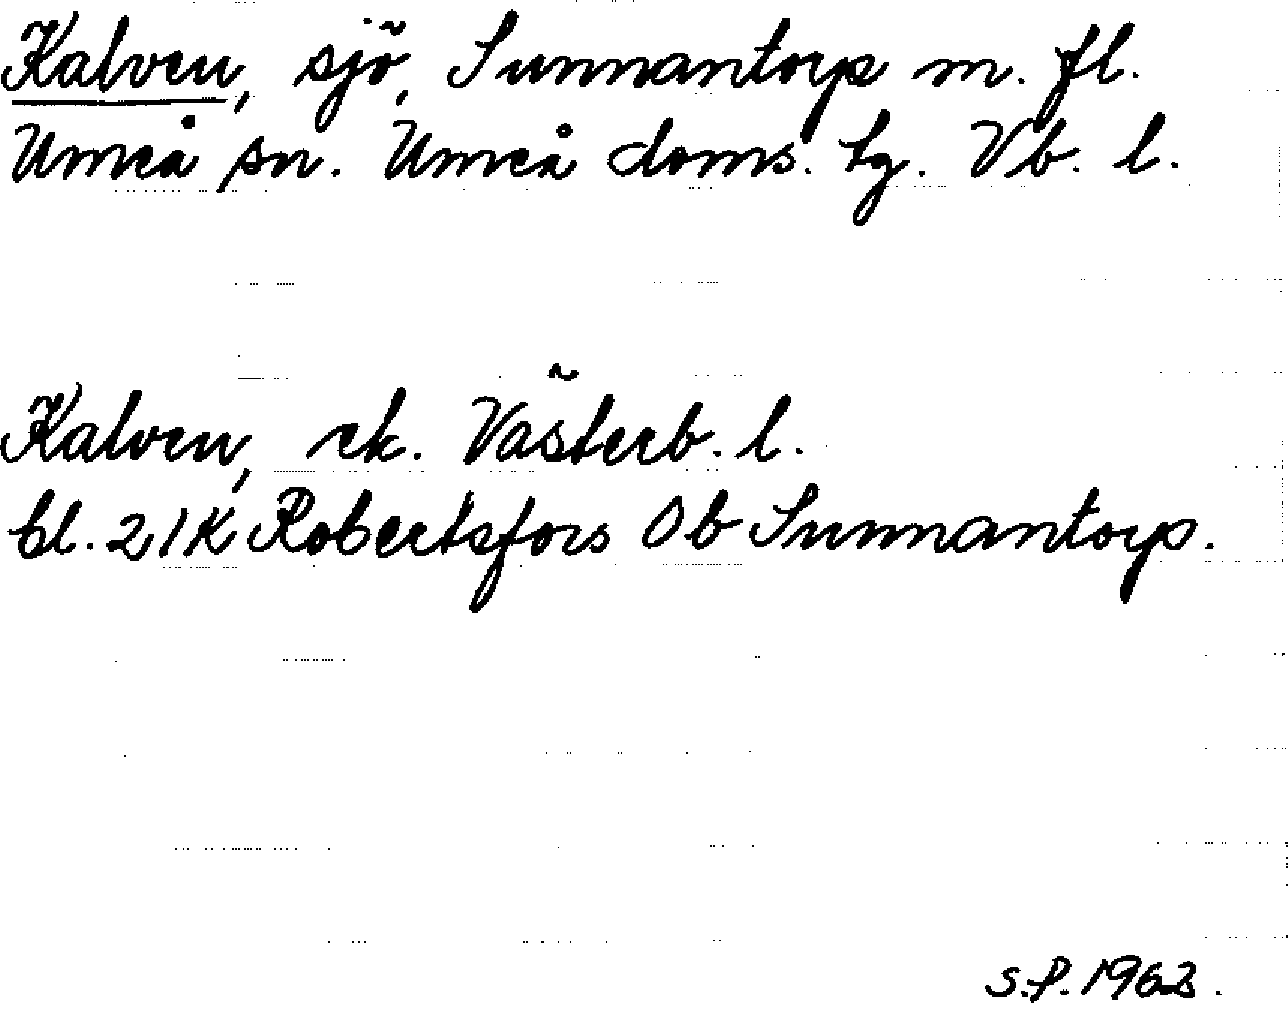 Kalven, sjö, Sunnantorp m. fl.
Umeå sn. Umeå doms. tg. Vb. l.
Kalven, ek. Västerb. l.
bl. 21K Robertsfors Ob Sunnantorp.
S.P. 1963.